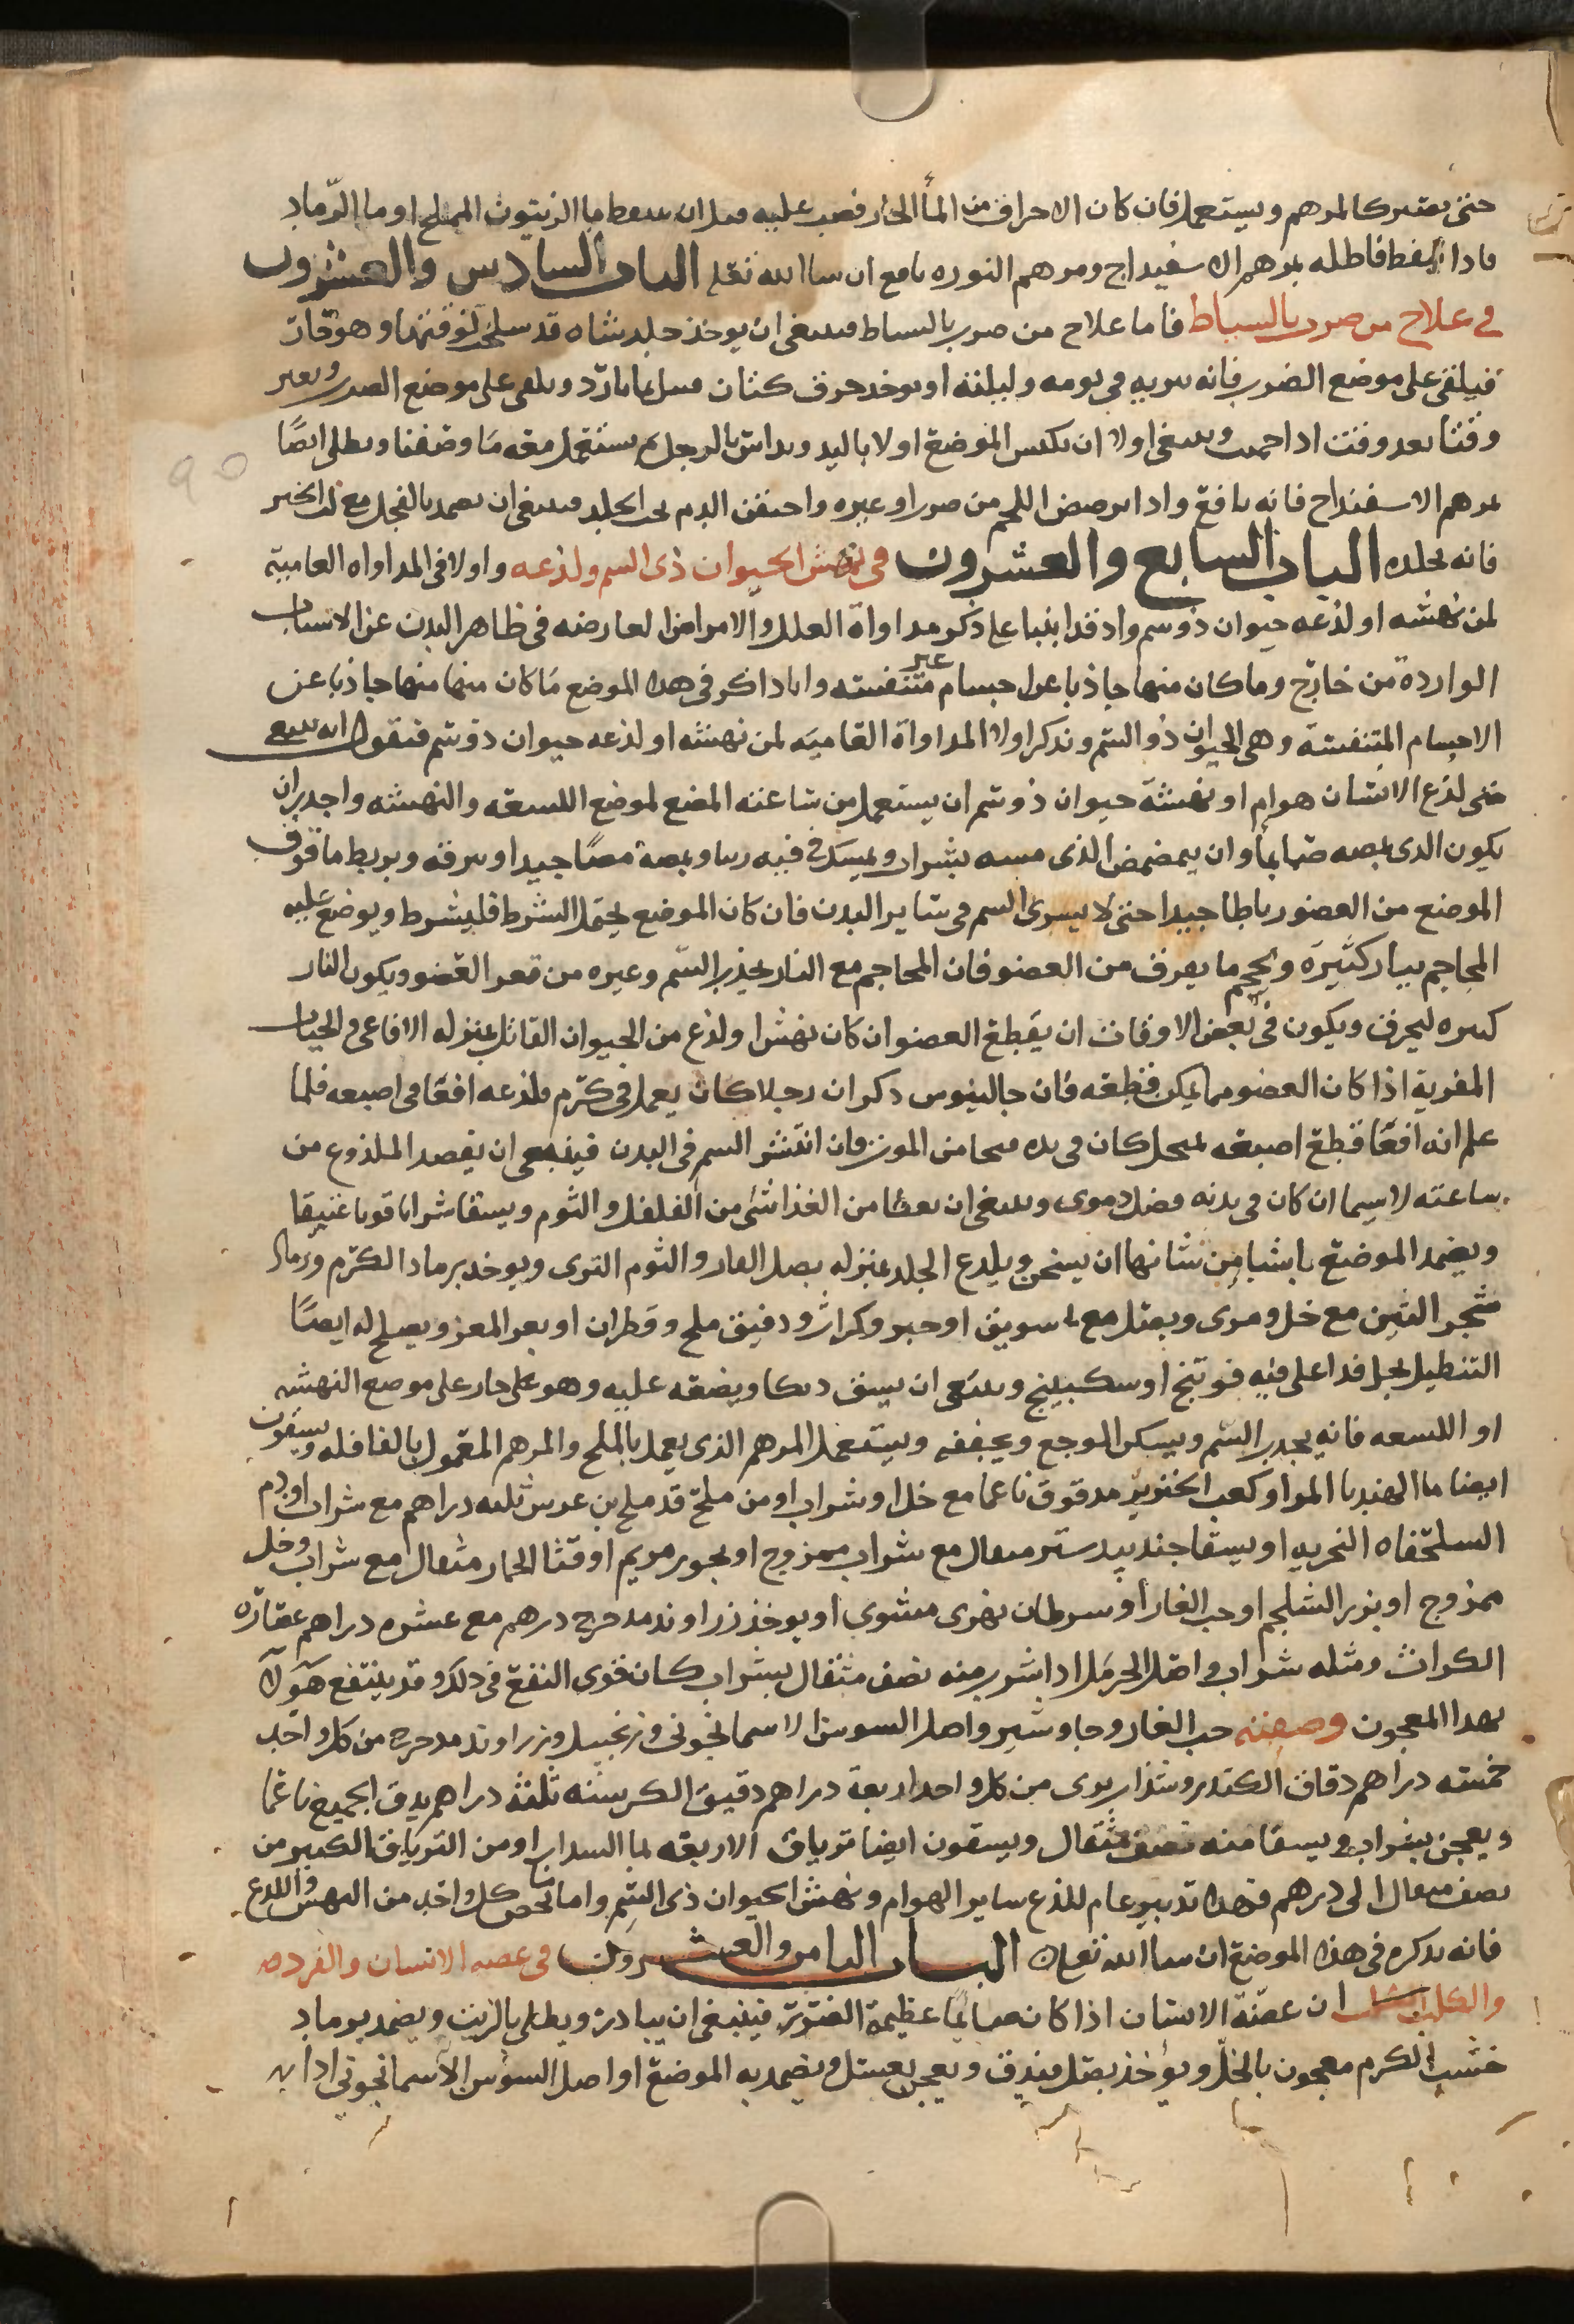 حتى يصير كالمرهم ويستعمل فان كان الاحراق من الماً الحار فصب عليه قبل ان يتنفط ما الزيتون المملح او ما الرّماد
فاذا تنفط فاطله بمرهم الاسفيداج ومرهم النوره نافع ان شاالله تعلى الباب السادس والعشرون
في علاج من ضرب بالسياط فاما علاج من ضرب بالسياط فينبغي ان يوخذ جلد شاه قد سلخ لوقتها وهو حار
فيلقى على موضع الضرب فانه يبريه في يومه وليلته او يوخذ خرق كتان فيبل بما بارد ويلقى على موضع الضرب ويغير
وقتا بعد وقت اذا حميت وينبغي اولا ان يكبس الموضع اولا باليد ويداس بالرجل ثم يستعمل معه ما وصفنا ويطلى ايضًا
بمرهم الاسفنداج فانه نافع واذا ترضض اللحم من ضرب او غيره واحتقن الدم تحت الجلد فينبغي ان يضمد بالفجل مع لب الخبز
فانه يحلله الباب السابع والعشرون في نهش الحيوان ذى السم ولذعه واولا في المداواه العامية
لمن نهشه او لذعه حيوان ذو سم واذ قد اتينا على ذكر مداواة العلل والامراض العارضه في ظاهر البدن عن الاسباب
الوارده من خارج وما كان منها حادثا عن اجسام غير متنفسه وانا ذاكر في هذا الموضع ما كان منها منها حادثا عن
الاجسام المتنفسة وهى الحيوان ذو السم ونذكر اولا المداواة العامية لمن نهشه او لذعه حيوان ذو سم فنقول انه ينبغي
متى لذع الانسان هوام او نهشة حيوان ذو سم ان يستعمل من ساعته المص لموضع اللسعه والنهشه واجدر ان
يكون الذى يمصه صايماً وان يتمضمض الذى يمصه بشراب ويمسك في فيه زيتا ويمصه مصًا جيدا ويبزقه ويربط ما فوق
الموضع من العضو رباطا جيدا حتى لا يسرى السم في ساير البدن فان كان الموضع يحتمل الشرط فليشرط ويوضع عليه
المحاجم بنار كثيرَه ويحجم ما يعرف من العضو فان المحاجم مع النار يجذب السّم وغيره من قعر العضو ويكون النار
كثيره ليحرق ويكون في بعض الاوقات ان يقطع العضو ان كان نهش او لذع من الحيوان القاتل بمنزله الافاعى والحيات
المغربية اذا كان العضو مما يمكن قطعه فان جالينوس ذكر ان رجلا كان يعمل في كرم فلذعه افعا في اصبعه فلما
علم انه افعًا قطع اصبعه بمنجل كان في يده فنجا من الموت فان انتشر السم في البدن فينبغي ان يفصد الملذوع من
ساعته لاسيما ان كان في بدنه فضل دموى وينبغي ان يعطا من الغذا شى من الفلفل والثوم ويسقا شرابا قويا عتيقا
ويضمد الموضع باشيا من شانها ان يسخن ويلدع الجلد بمنزله بصل الفار والثوم البرى ويوخذ برماد الكرم ورماد
شجر التين مع خل ومرى وبصل مع سويق او خبز وكراث ودقيق ملح وقطران او بعر المعز ويصلح له ايضًا
التنطيل بخل قد اغلى فيه فوتنج او سكبينج وينبغي ان يشق ديكا ويضعه عليه وهو على حار على موضع النهشه
او اللسعه فانه يجذب السم ويسكن الوجع ويجففه ويستعمل المرهم الذى يعمل بالملح والمرهم المعمول بالفافله ويسقون
ايضا ما الهندبا المر او كعب الخنزير مدقوق ناعما مع خل او شراب او من ملح قد ملح بن عرس ثلثه دراهم مع شراب او دم
السلحفاه البحريه او يسقا جندبيدستر مثقال مع شراب ممزوج او بخور مريم او قثا الحمار مثقال مع شراب وخل
ممزوج او بزر الشلجم او حب الغار او سرطان نهرى مشوى او يوخذ زراوند مدحرج درهم مع عشره دراهم عصاره
الكراث ومثله شراب واصل الحرمل اذا شرب منه نصف مثقال بشراب كان قوى النفع في ذلك وقد ينتفع هَوَلَآ
بهذا المعجون وصفته حب الغار وجاوشير واصل السوسن الاسمانجونى وزنجبيل وزراوند مدحرج من كل واحد
خمسه دراهم دقاق الكندر وسذاب برى من كل واحد اربعة دراهم دقيق الكرسنه ثلثه دراهم يدق الجميع ناعما
ويعجن بشراب ويسقا منه نصف مثقال ويسقون ايضا ترياق الاربعه بما السداب او من الترياق الكبير من
نصف مثقال الى درهم فهذا تدبير عام للذع ساير الهوام ونهش الحيوان ذى السّم واما ما يخص كل واحد من النهش واللدع
فانه نذكره في هذا الموضع ان شاالله تعلى الباب الثامن والعشرون في عضه الانسان والقرده
والكلب ان عضّة الانسان اذا كان صايما عظيمة الضرر فينبغي ان يبادر ويطلى بالزيت ويضمد برماد
خشب الكرم معجون بالخلّ ويؤخذ بصل فيدق ويعجن بعسل ويضمد به الموضع او اصل السوسن الاسمانجونى اذا